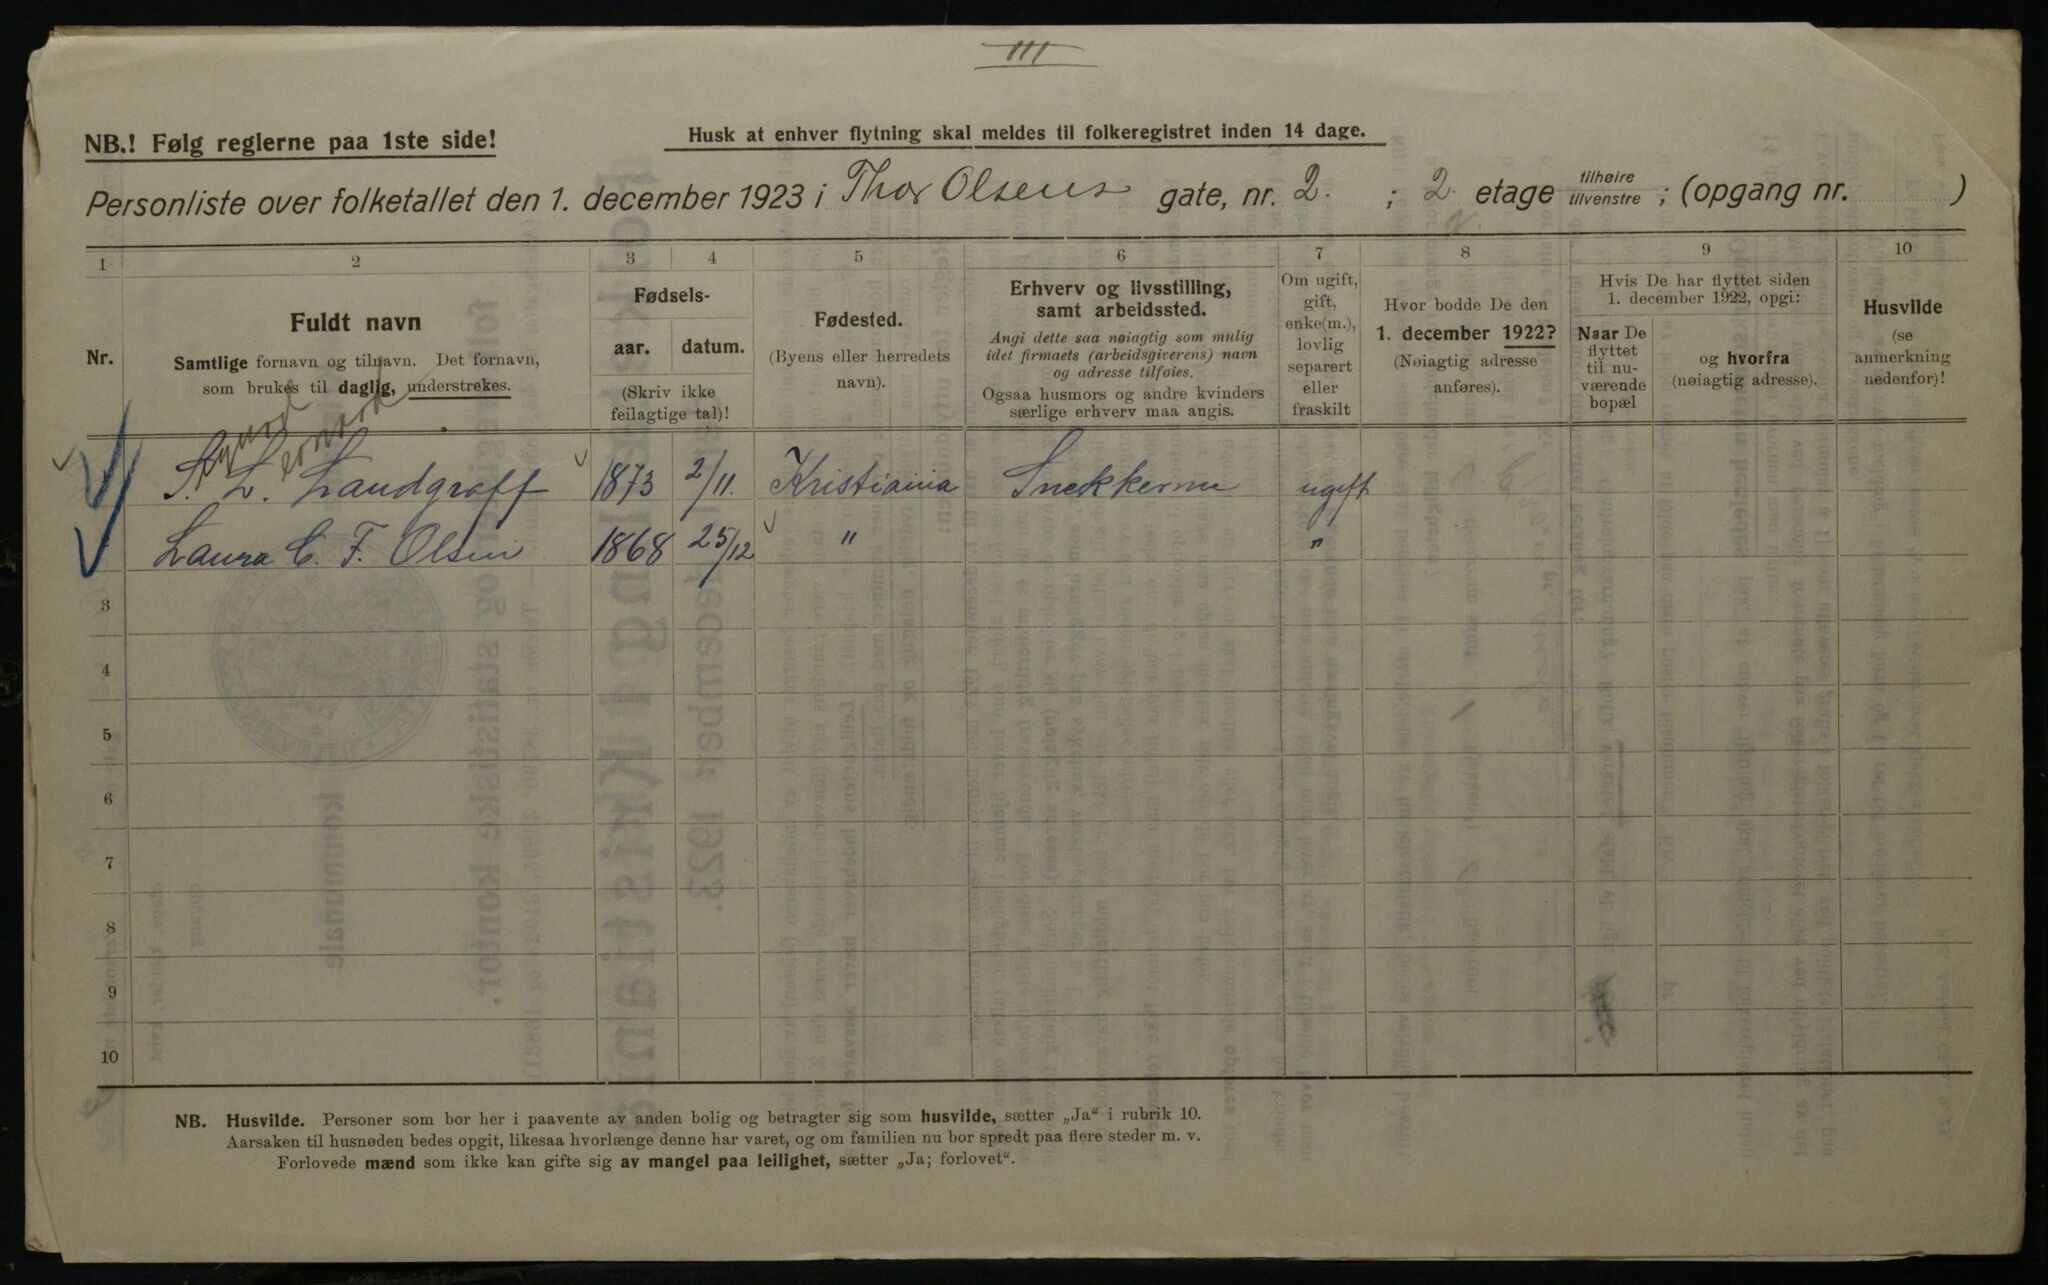 111
NB.! Følg reglerne paa 1ste side!
Husk at enhver flytning skal meldes til folkeregistret inden 14 dage.
Personliste over folketallet den 1. december 1923 i Thor Olsens gate, nr. 2. ; 2. etage tilhøire tilvenstre ; (opgang nr. )
1 2 3 4 5 6 7 8 9 10
Nr.
Fuldt navn
Samtlige fornavn og tilnavn. Det fornavn,
som brukes til daglig, understrekes.
Fødsels-
aar. datum.
(Skriv ikke
feilagtige tal)!
Fødested.
(Byens eller herredets
navn).
Erhverv og livsstilling,
samt arbeidssted.
Angi dette saa nøiagtig som mulig
idet firmaets (arbeidsgiverens) navn
og adresse tilføies.
Ogsaa husmors og andre kvinders
særlige erhverv maa angis.
Om ugift,
gift,
enke(m.),
lovlig
separert
eller
fraskilt
Hvor bodde De den
1. december 1922?
(Nøiagtig adresse
anføres).
Hvis De har flyttet siden
1. december 1922, opgi:
Naar De
flyttet
til nu-
værende
bopæl
og hvorfra
(nøiagtig adresse).
Husvilde
(se
anmerkning
nedenfor)!
S. L. Landgraff 1873 2/11. Kristiania ugift
Laura C. F. Olsen 1868 25/12 " "
3
4
5
6
7
8
9
10
NB. Husvilde. Personer som bor her i paavente av anden bolig og betragter sig som husvilde, sætter „Ja“ i rubrik 10.
Aarsaken til husnøden bedes opgit, likesaa hvorlænge denne har varet, og om familien nu bor spredt paa flere steder m. v.
Forlovede mænd som ikke kan gifte sig av mangel paa leilighet, sætter „Ja; forlovet“.